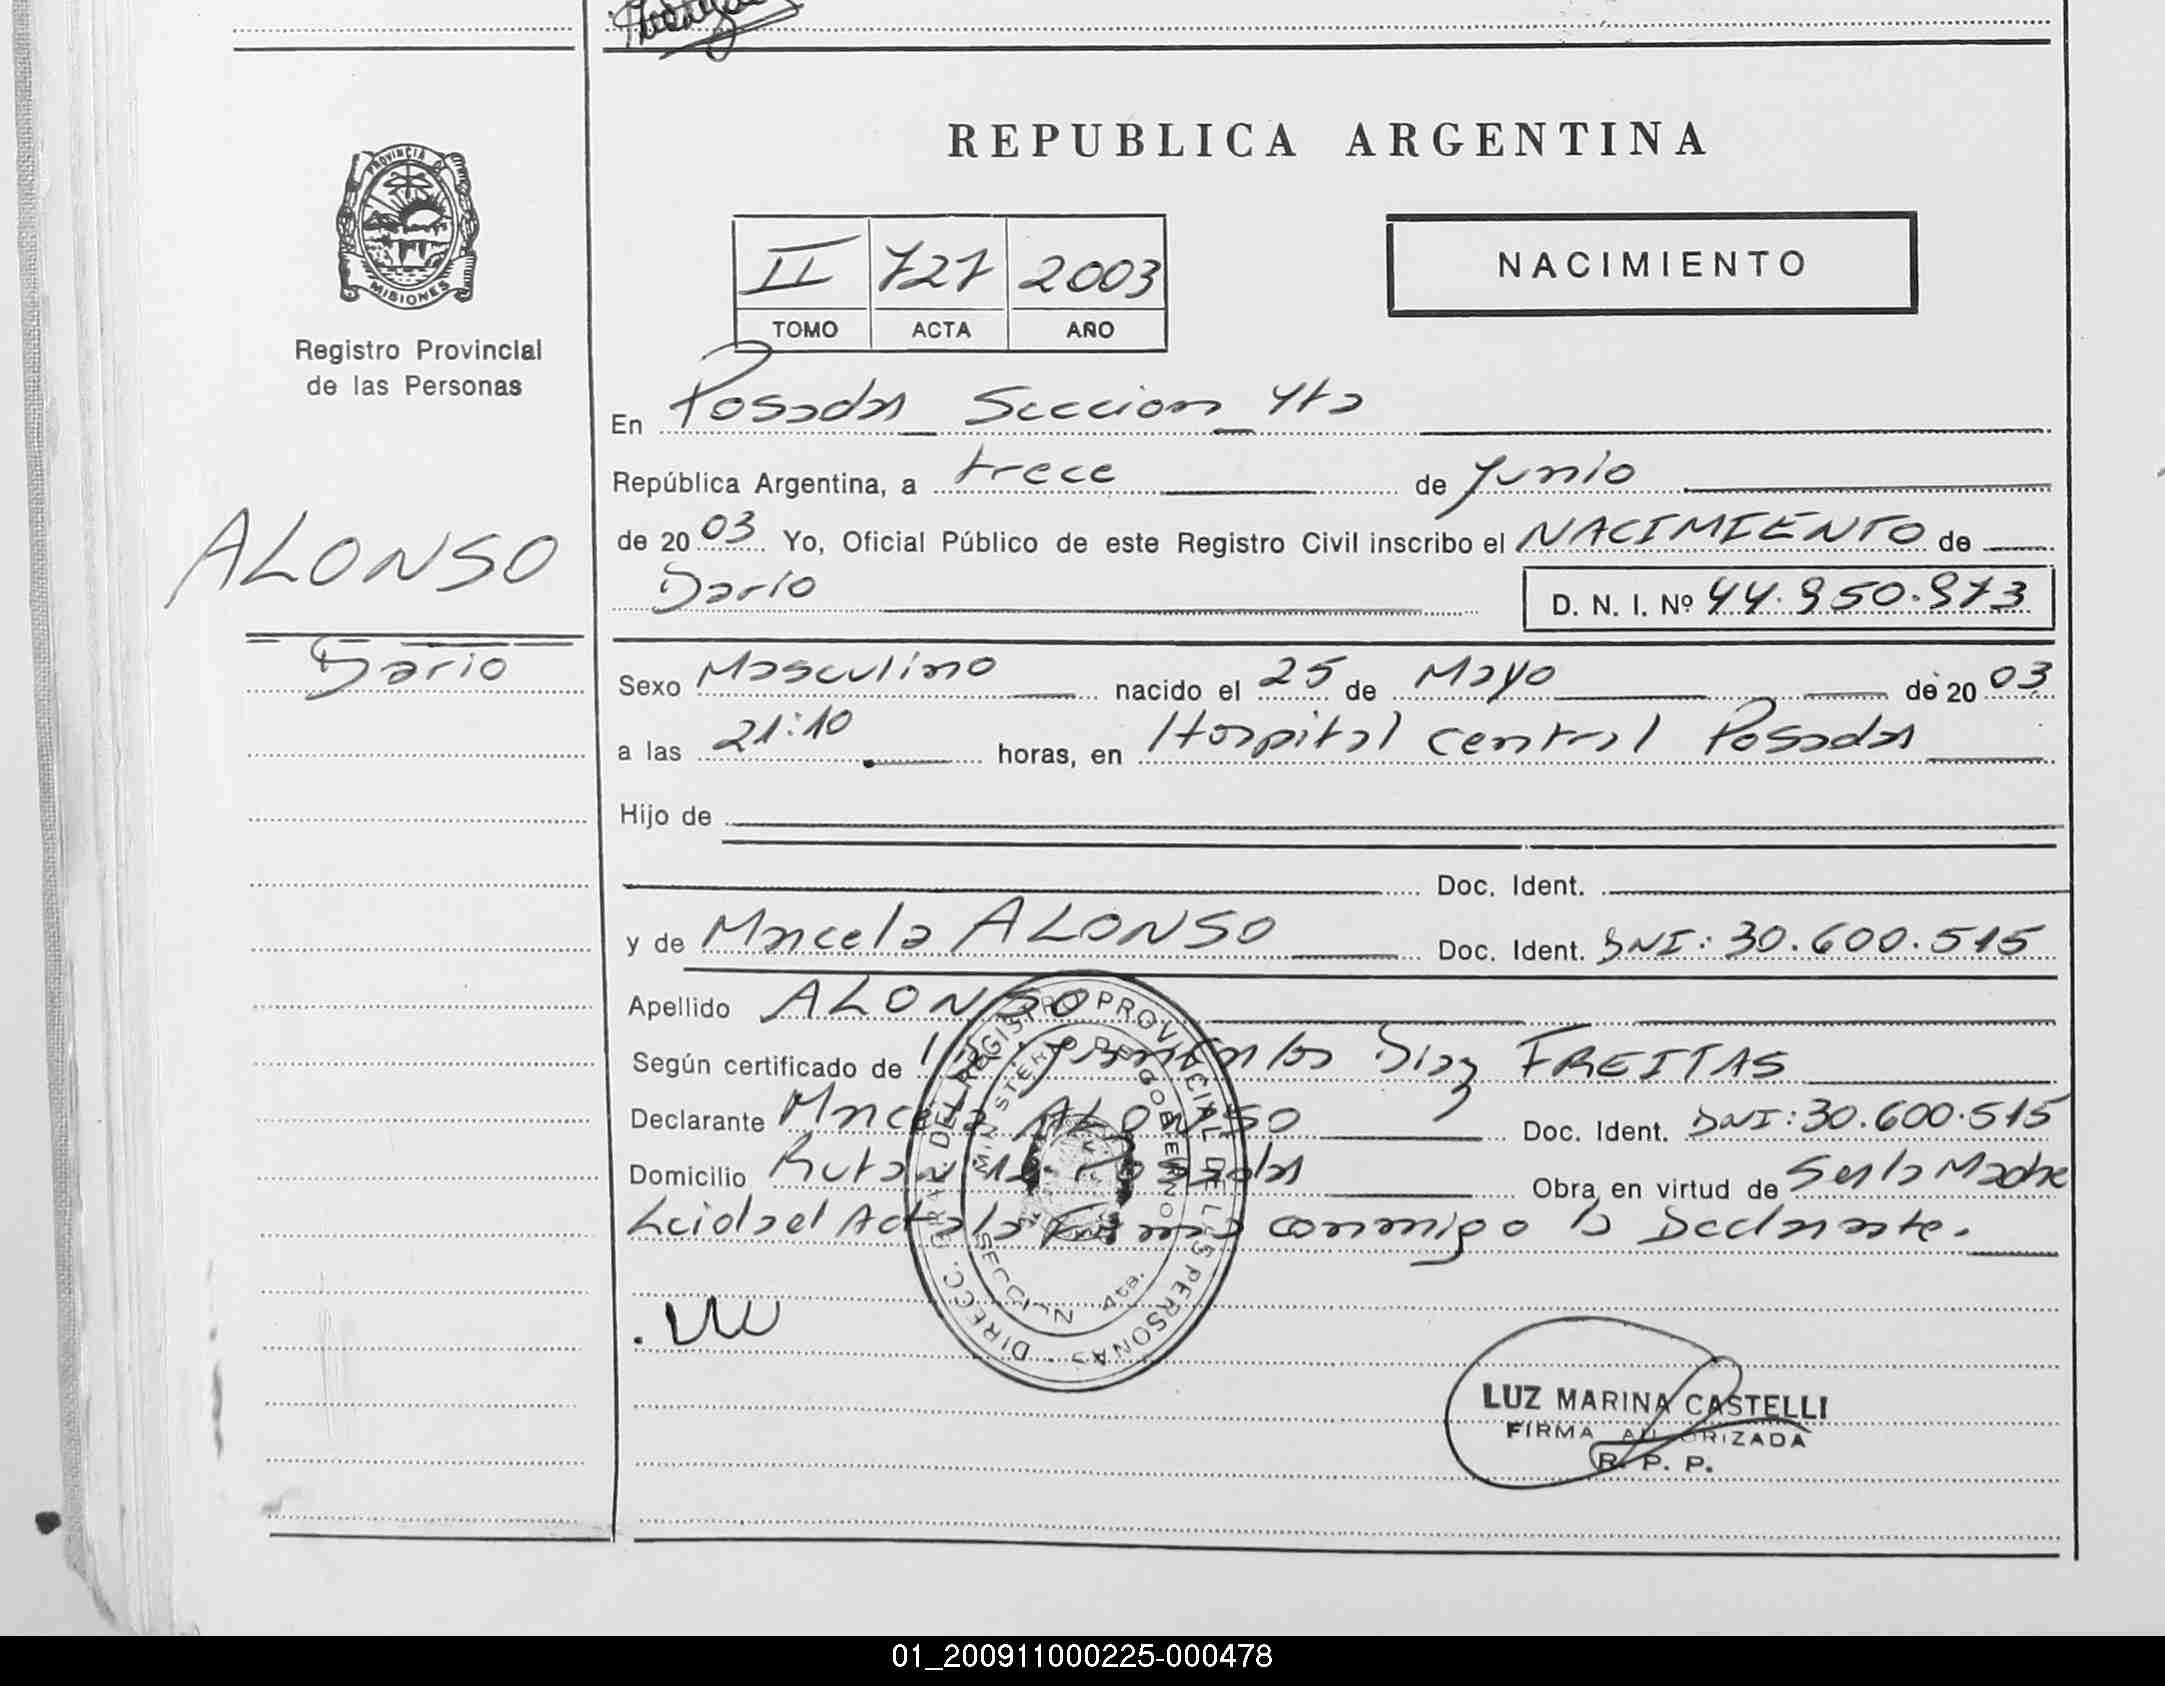 REPUBLICA ARGENTINA
PROVINCIA DE
MISIONES
Registro Provincial
de las Personas
II 727 2003
TOMO ACTA AÑO
NACIMIENTO
En Posadas Seccion 4ta
República Argentina, a trece de Junio
de 2003 Yo, Oficial Público de este Registro Civil inscribo el NACIMIENTO de
Dario D. N. I. Nº 44.950.973
ALONSO
Dario
Sexo Masculino nacido el 25 de Mayo de 2003
a las 21:10 horas, en Hospital central Posadas
Hijo de
Doc. Ident.
y de Marcela ALONSO Doc. Ident. DNI: 30.600.515
Apellido ALONSO
Según certificado de Diaz FREITAS
Declarante Marcela ALONSO Doc. Ident. DNI: 30.600.515
Domicilio Ruta Posadas Obra en virtud de Ser la Madre
Leida el Acta la Firma conmigo la Declarante.
DIRECC. GRAL DEL REGISTRO PROVINCIAL DE LAS PERSONAS
MINISTERIO DE GOBIERNO
SECCION 4ta.
LUZ MARINA CASTELLI
FIRMA AUTORIZADA
R. P. P.
01_200911000225-000478